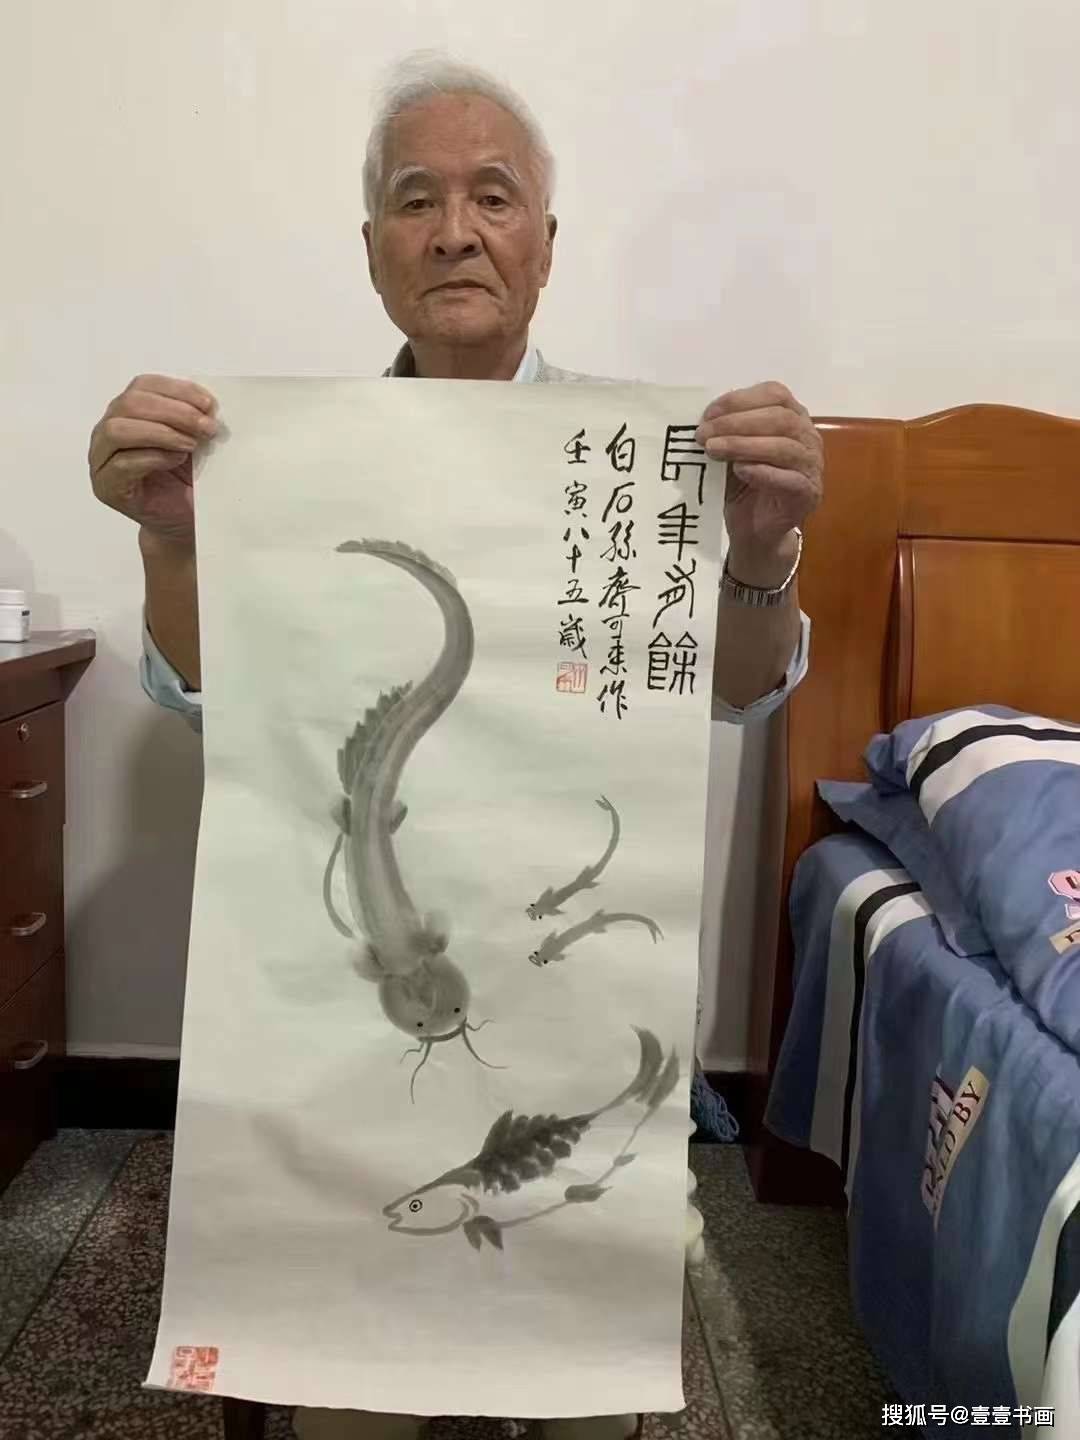 長年有餘
白石孫齊可來作
壬寅八十五歲
LD BY
搜狐号@壹壹书画